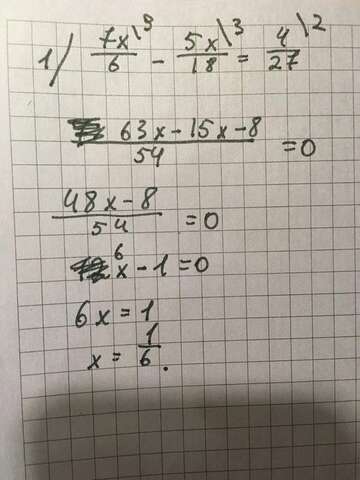 1) 7x\9/6 - 5x\3/18 = 4\2/27
63x-15x-8/54 = 0
48x-8/54 = 0
6x-1=0
6x=1
x=1/6.